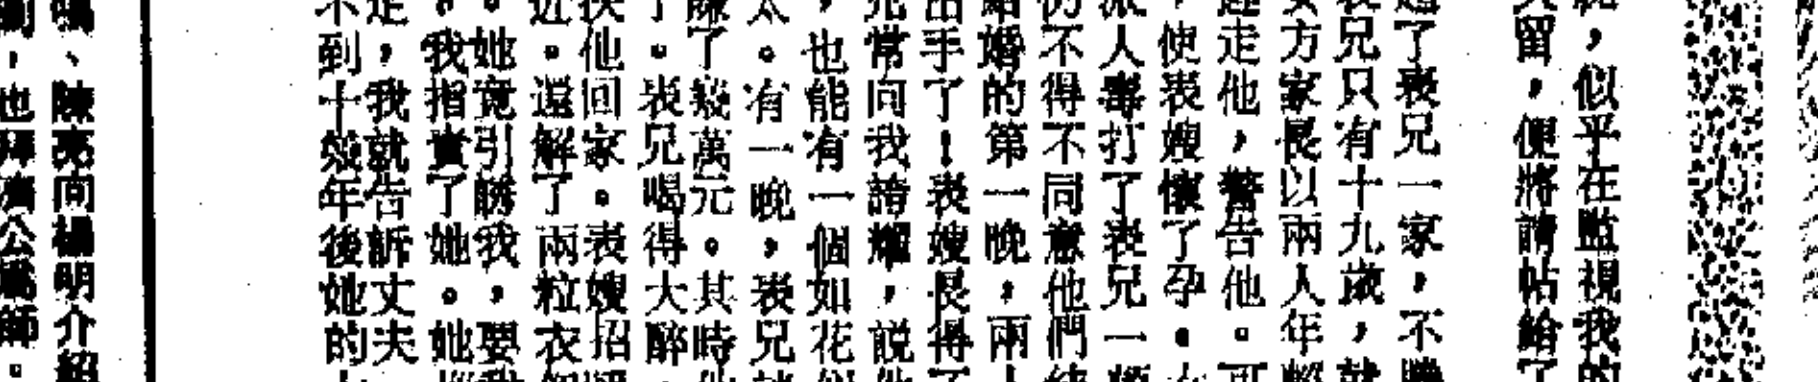 ，似乎在監視我的
留，便將請帖給了
了表兄一家，不
表兄只有十九歲，就
女方家長以兩人年輕
走他，警告他。可
，使表嫂懷了孕。
派人毒打了表兄一頓
仍不得不同意他們結
結婚的第一晚，兩人
出手了！表嫂長得
兄常向我誇耀，說他
，也能有一個如花
太。有一晚，表兄
賺了幾萬元。其時他
了。表兄喝得大醉，
扶他回家。表嫂招
近。還解了兩粒衣
。她竟引誘我，要
。我指責了她。她
走，我就告訴丈夫
不到十幾年後她的
、陳亮向楊明介紹
，也拜濟公為師。